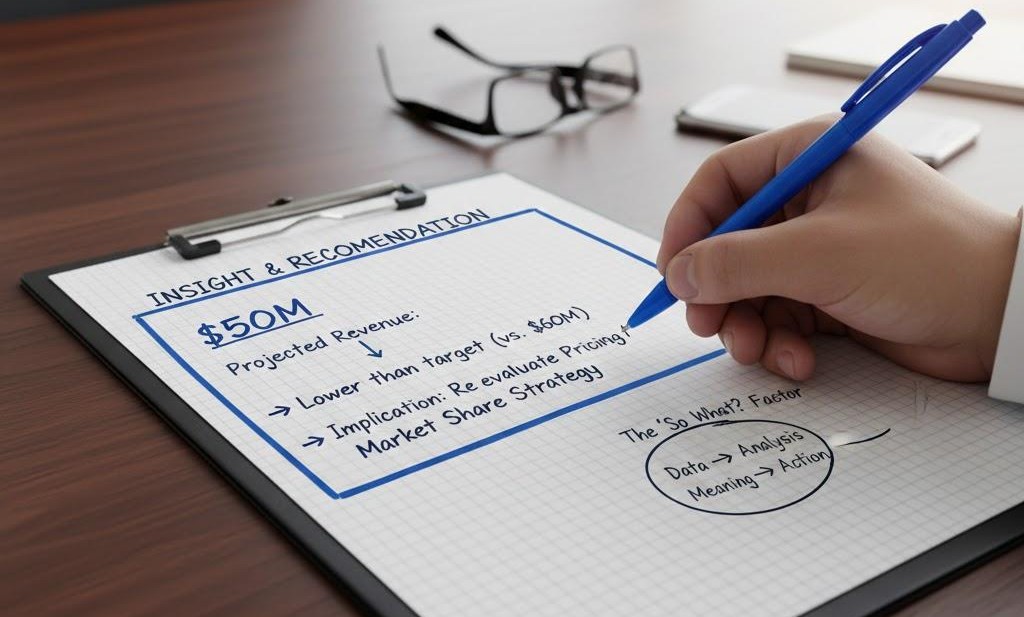 INSIGHT & RECOMENDATION
$50M
Projected Revenue:
→ Lower than target (vs. $60M)
→ Implication: Re evaluate Pricing/
Market Share Strategy
The 'So What? Factor
Data → Analysis
Meaning → Action